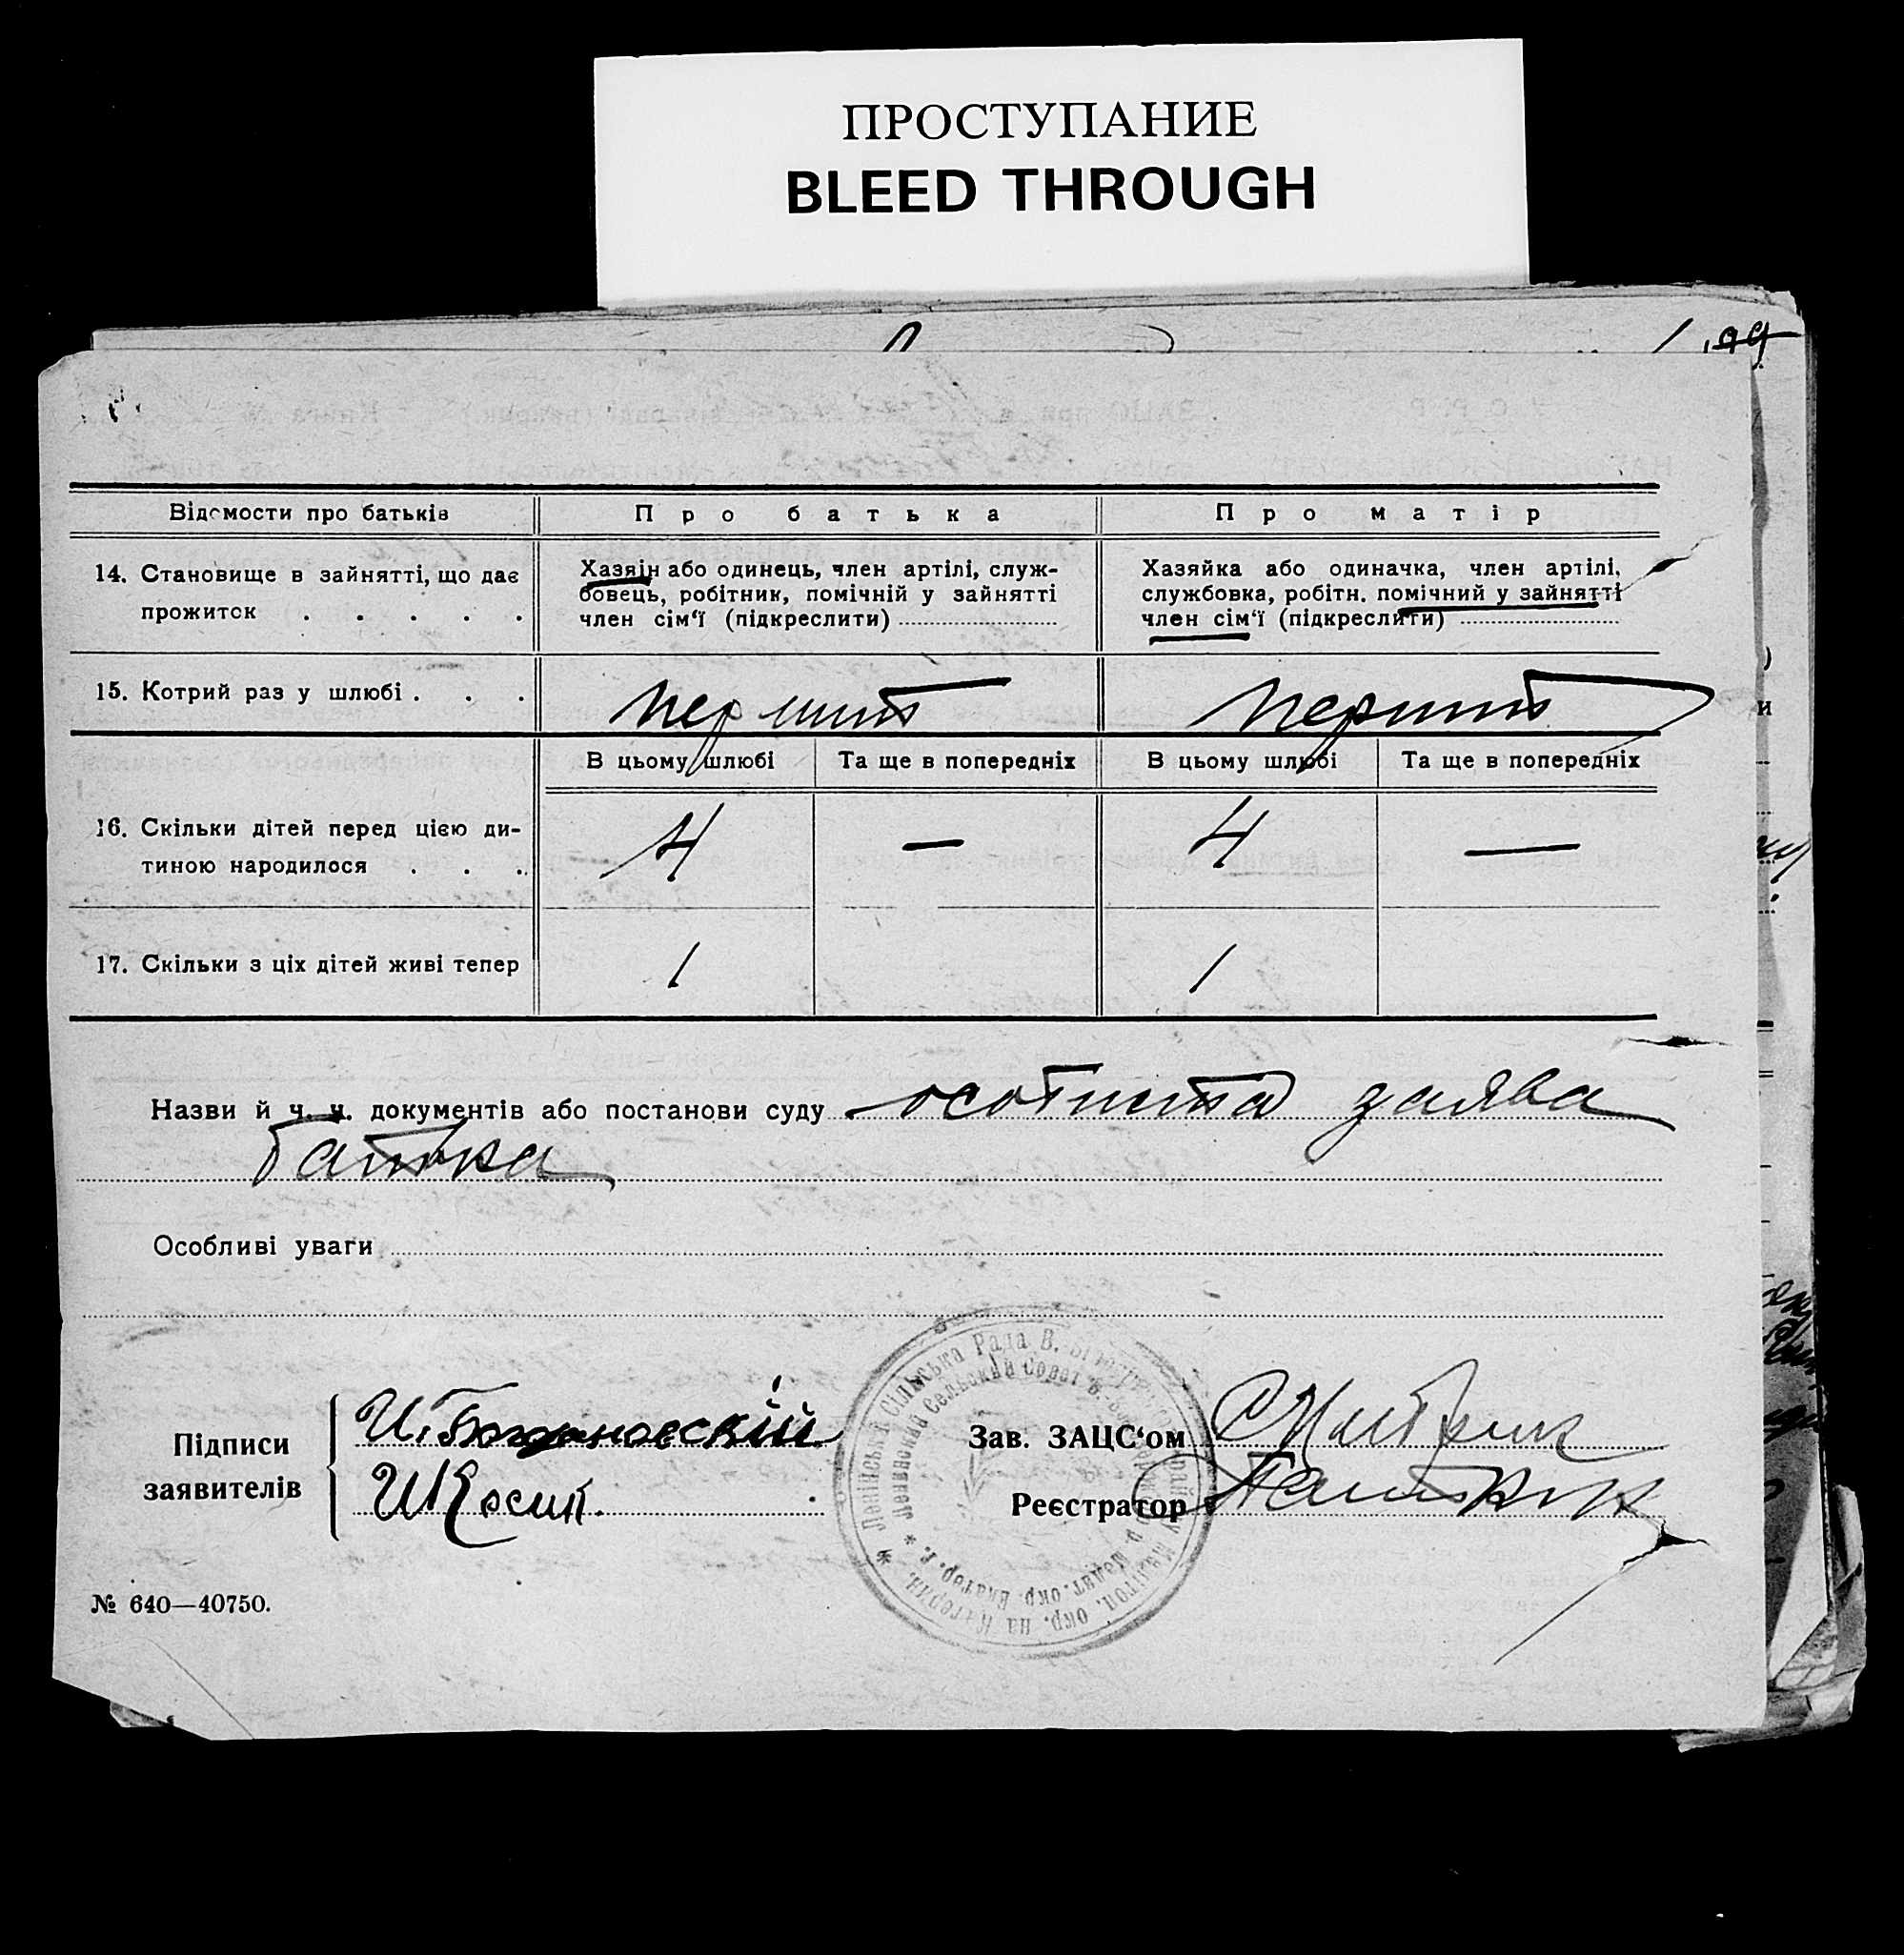 ПРОСТУПАНИЕ
BLEED THROUGH
Відомости про батьків
Про батька
Про матір
14. Становище в зайнятті, що дає
прожиток . . . . .
Хазяін або одинець, член артілі, служ-
бовець, робітник, помічній у зайнятті
член сім‘ї (підкреслити)
Хазяйка або одиначка, член артілі,
службовка, робітн. помічний у зайнятті
член сім‘ї (підкреслити)
15. Котрий раз у шлюбі . . .
перший
перший
В цьому шлюбі
Та ще в попередніх
В цьому шлюбі
Та ще в попередніх
16. Скільки дітей перед цією ди-
тиною народилося . . .
4
—
4
—
17. Скільки з ціх дітей живі тепер
1
1
Назви й ч. ч. документів або постанови суду особиста заява
батька
Особливі уваги
Підписи
заявителів
И. Богдановскій
И Косик.
Зав. ЗАЦС‘ом
Реєстратор
Ленінська Сільська Рада
Ленинский Сельский Совет
№ 640—40750.